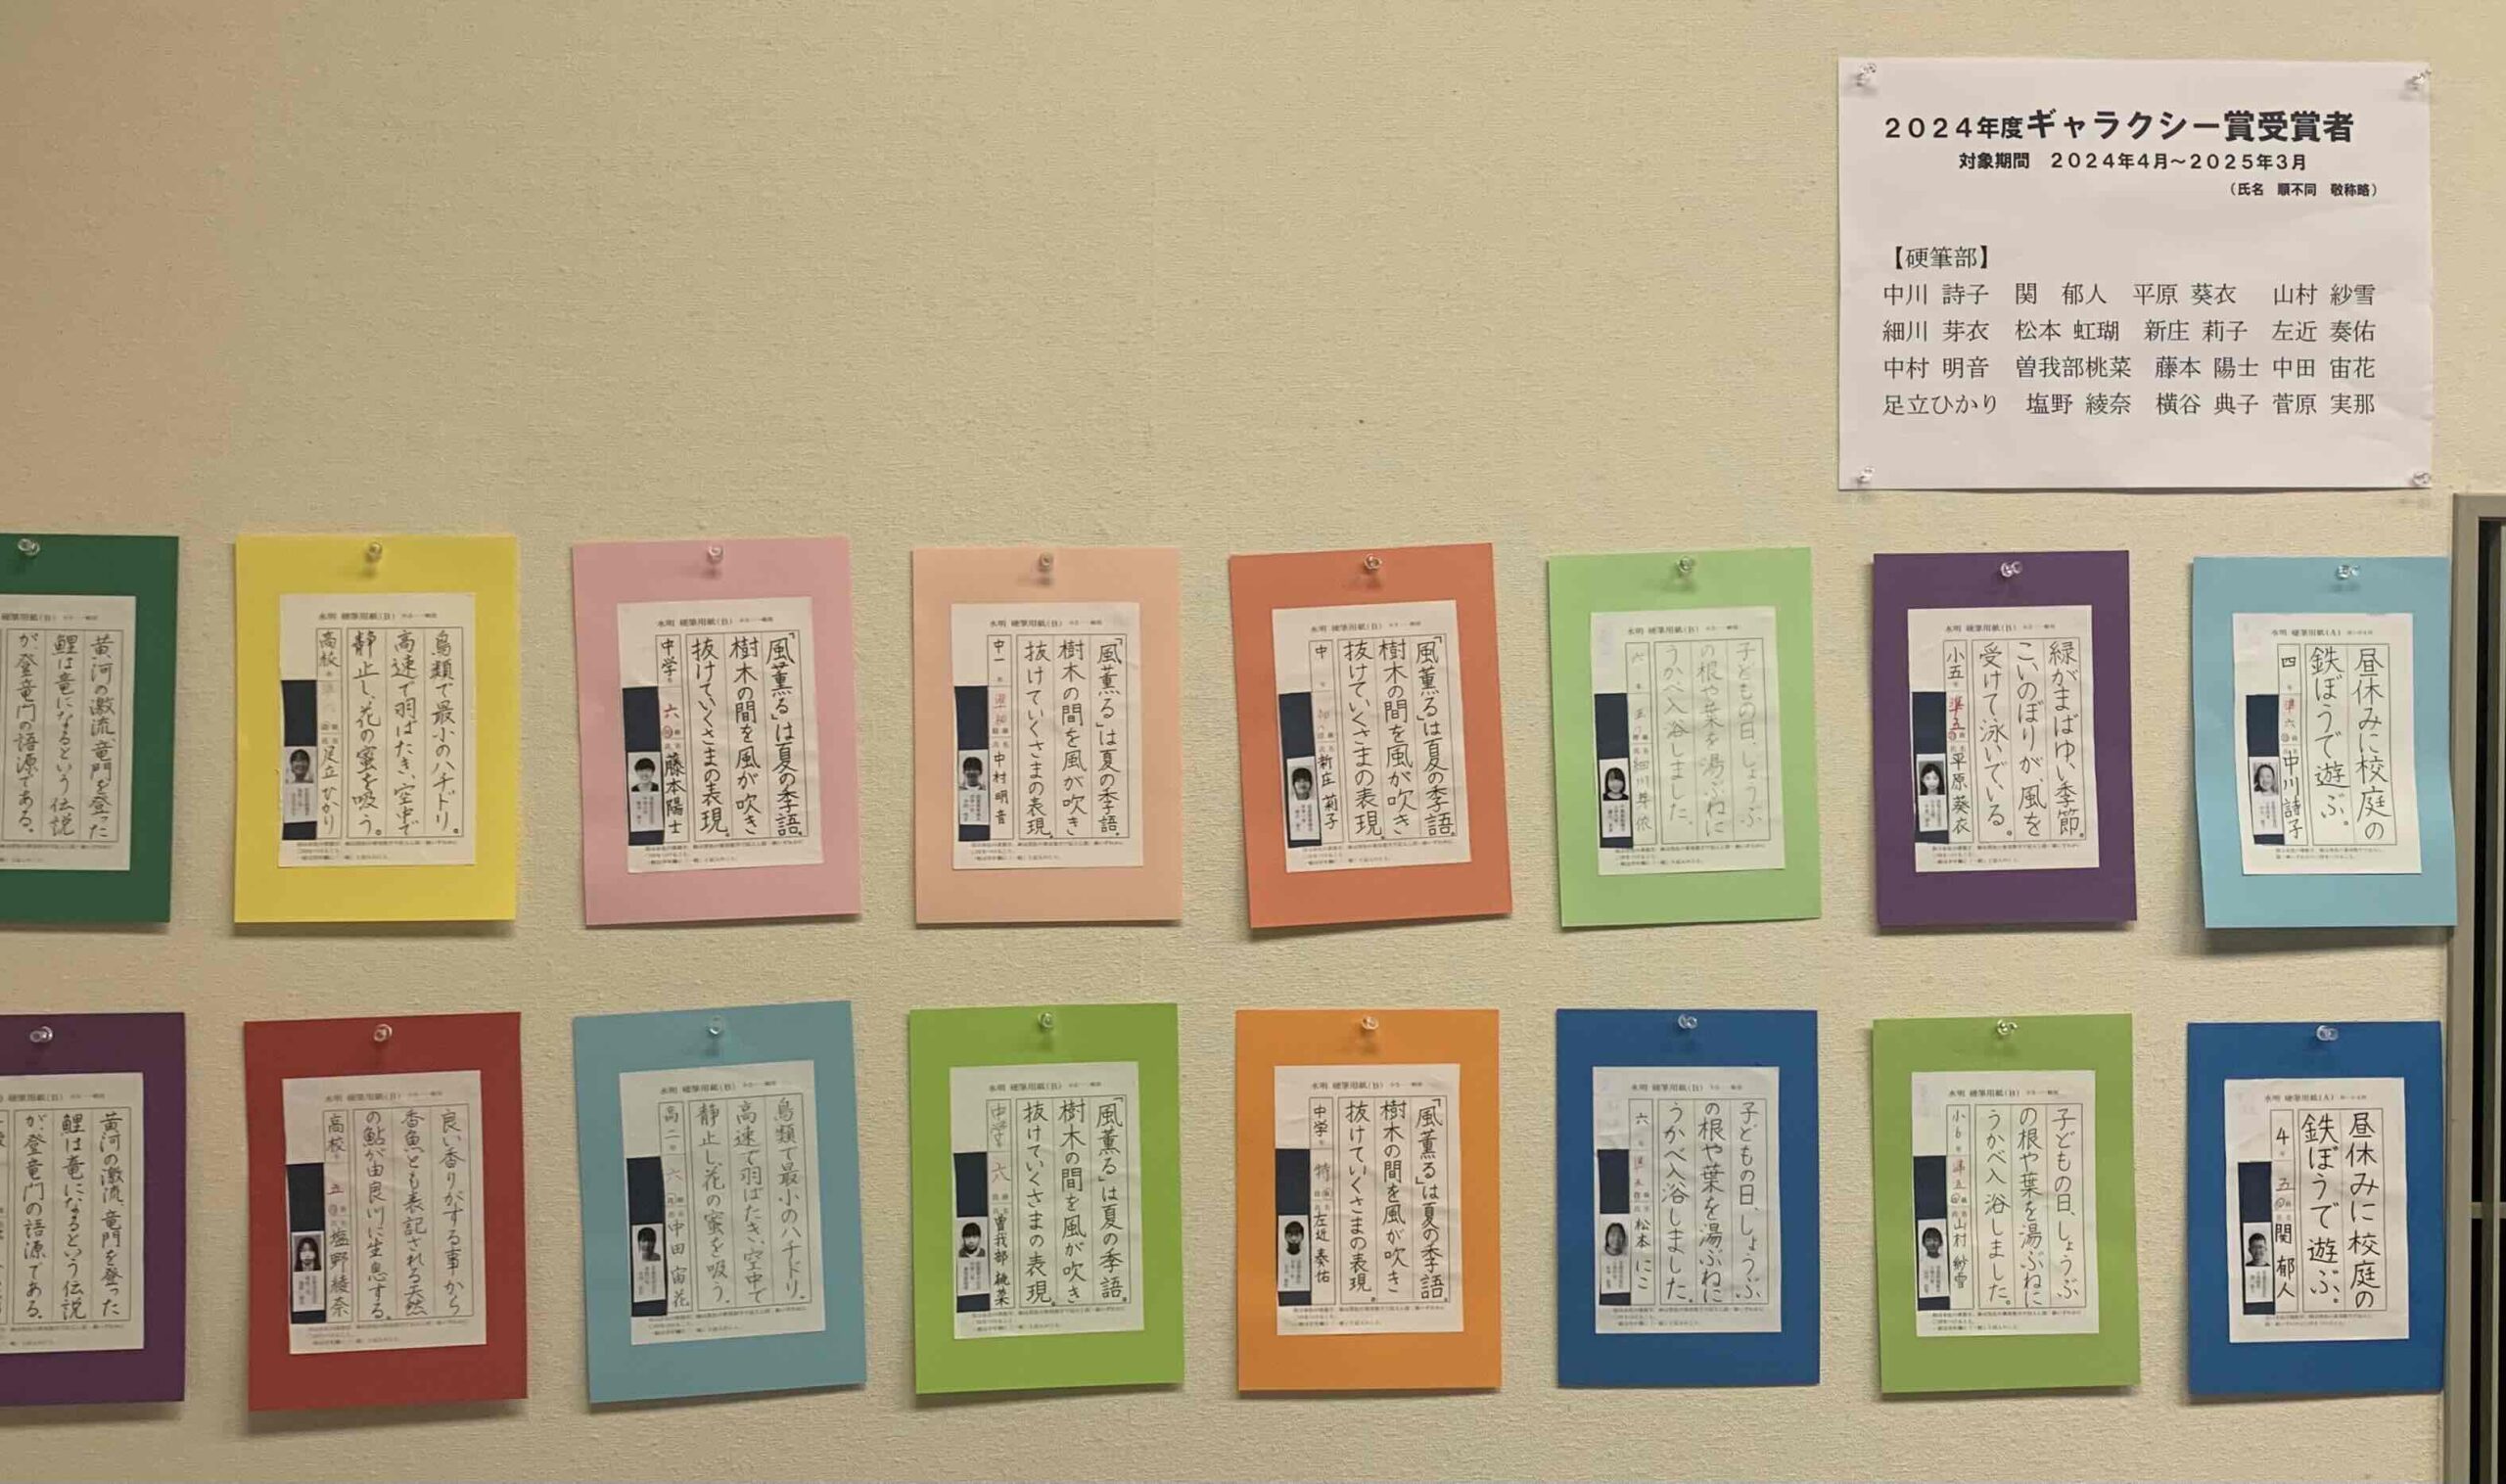 2024年度ギャラクシー賞受賞者
対象期間　2024年4月～2025年3月
（氏名　順不同　敬称略）
【硬筆部】
中川 詩子　関　郁人　平原 葵衣　山村 紗雪
細川 芽衣　松本 虹瑚　新庄 莉子　左近 奏佑
中村 明音　曽我部桃菜　藤本 陽士 中田 宙花
足立ひかり　塩野 綾奈　横谷 典子 菅原 実那
水明 硬筆用紙(A)
昼休みに校庭の
鉄ぼうで遊ぶ。
四 準六 中川詩子
水明 硬筆用紙(B)
緑がまばゆい季節。
こいのぼりが、風を
受けて泳いでいる。
小五 準五 平原葵衣
水明 硬筆用紙(B)
子どもの日、しょうぶ
の根や葉を湯ぶねに
うかべ入浴しました。
六 五 細川芽依
水明 硬筆用紙(B)
「風薫る」は夏の季語。
樹木の間を風が吹き
抜けていくさまの表現。
中 新庄莉子
水明 硬筆用紙(B)
「風薫る」は夏の季語。
樹木の間を風が吹き
抜けていくさまの表現。
中一 中村明音
水明 硬筆用紙(B)
「風薫る」は夏の季語。
樹木の間を風が吹き
抜けていくさまの表現。
中学 六 藤本陽士
水明 硬筆用紙(B)
鳥類で最小のハチドリ。
高速で羽ばたき、空中で
静止し、花の蜜を吸う。
高校 足立ひかり
硬筆用紙(B)
黄河の激流、竜門を登った
鯉は竜になるという伝説
が、登竜門の語源である。
水明 硬筆用紙(A)
昼休みに校庭の
鉄ぼうで遊ぶ。
4 五 関郁人
水明 硬筆用紙(B)
子どもの日、しょうぶ
の根や葉を湯ぶねに
うかべ入浴しました。
小6 準五 山村紗雪
水明 硬筆用紙(B)
子どもの日、しょうぶ
の根や葉を湯ぶねに
うかべ入浴しました。
六 準五 松本にこ
水明 硬筆用紙(B)
「風薫る」は夏の季語。
樹木の間を風が吹き
抜けていくさまの表現。
中学 特 左近奏佑
水明 硬筆用紙(B)
「風薫る」は夏の季語。
樹木の間を風が吹き
抜けていくさまの表現。
中学 六 曽我部桃菜
水明 硬筆用紙(B)
鳥類で最小のハチドリ。
高速で羽ばたき、空中で
静止し、花の蜜を吸う。
高二 六 中田宙花
水明 硬筆用紙(B)
良い香りがする事から
香魚とも表記される天然
の鮎が由良川に生息する。
高校 五 塩野綾奈
硬筆用紙(B)
黄河の激流、竜門を登った
鯉は竜になるという伝説
が、登竜門の語源である。